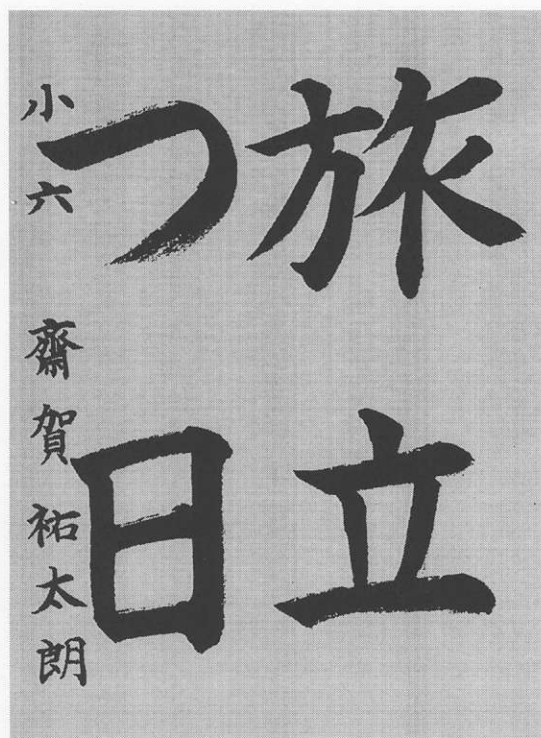 旅立
つ日
小六 齋賀祐太朗